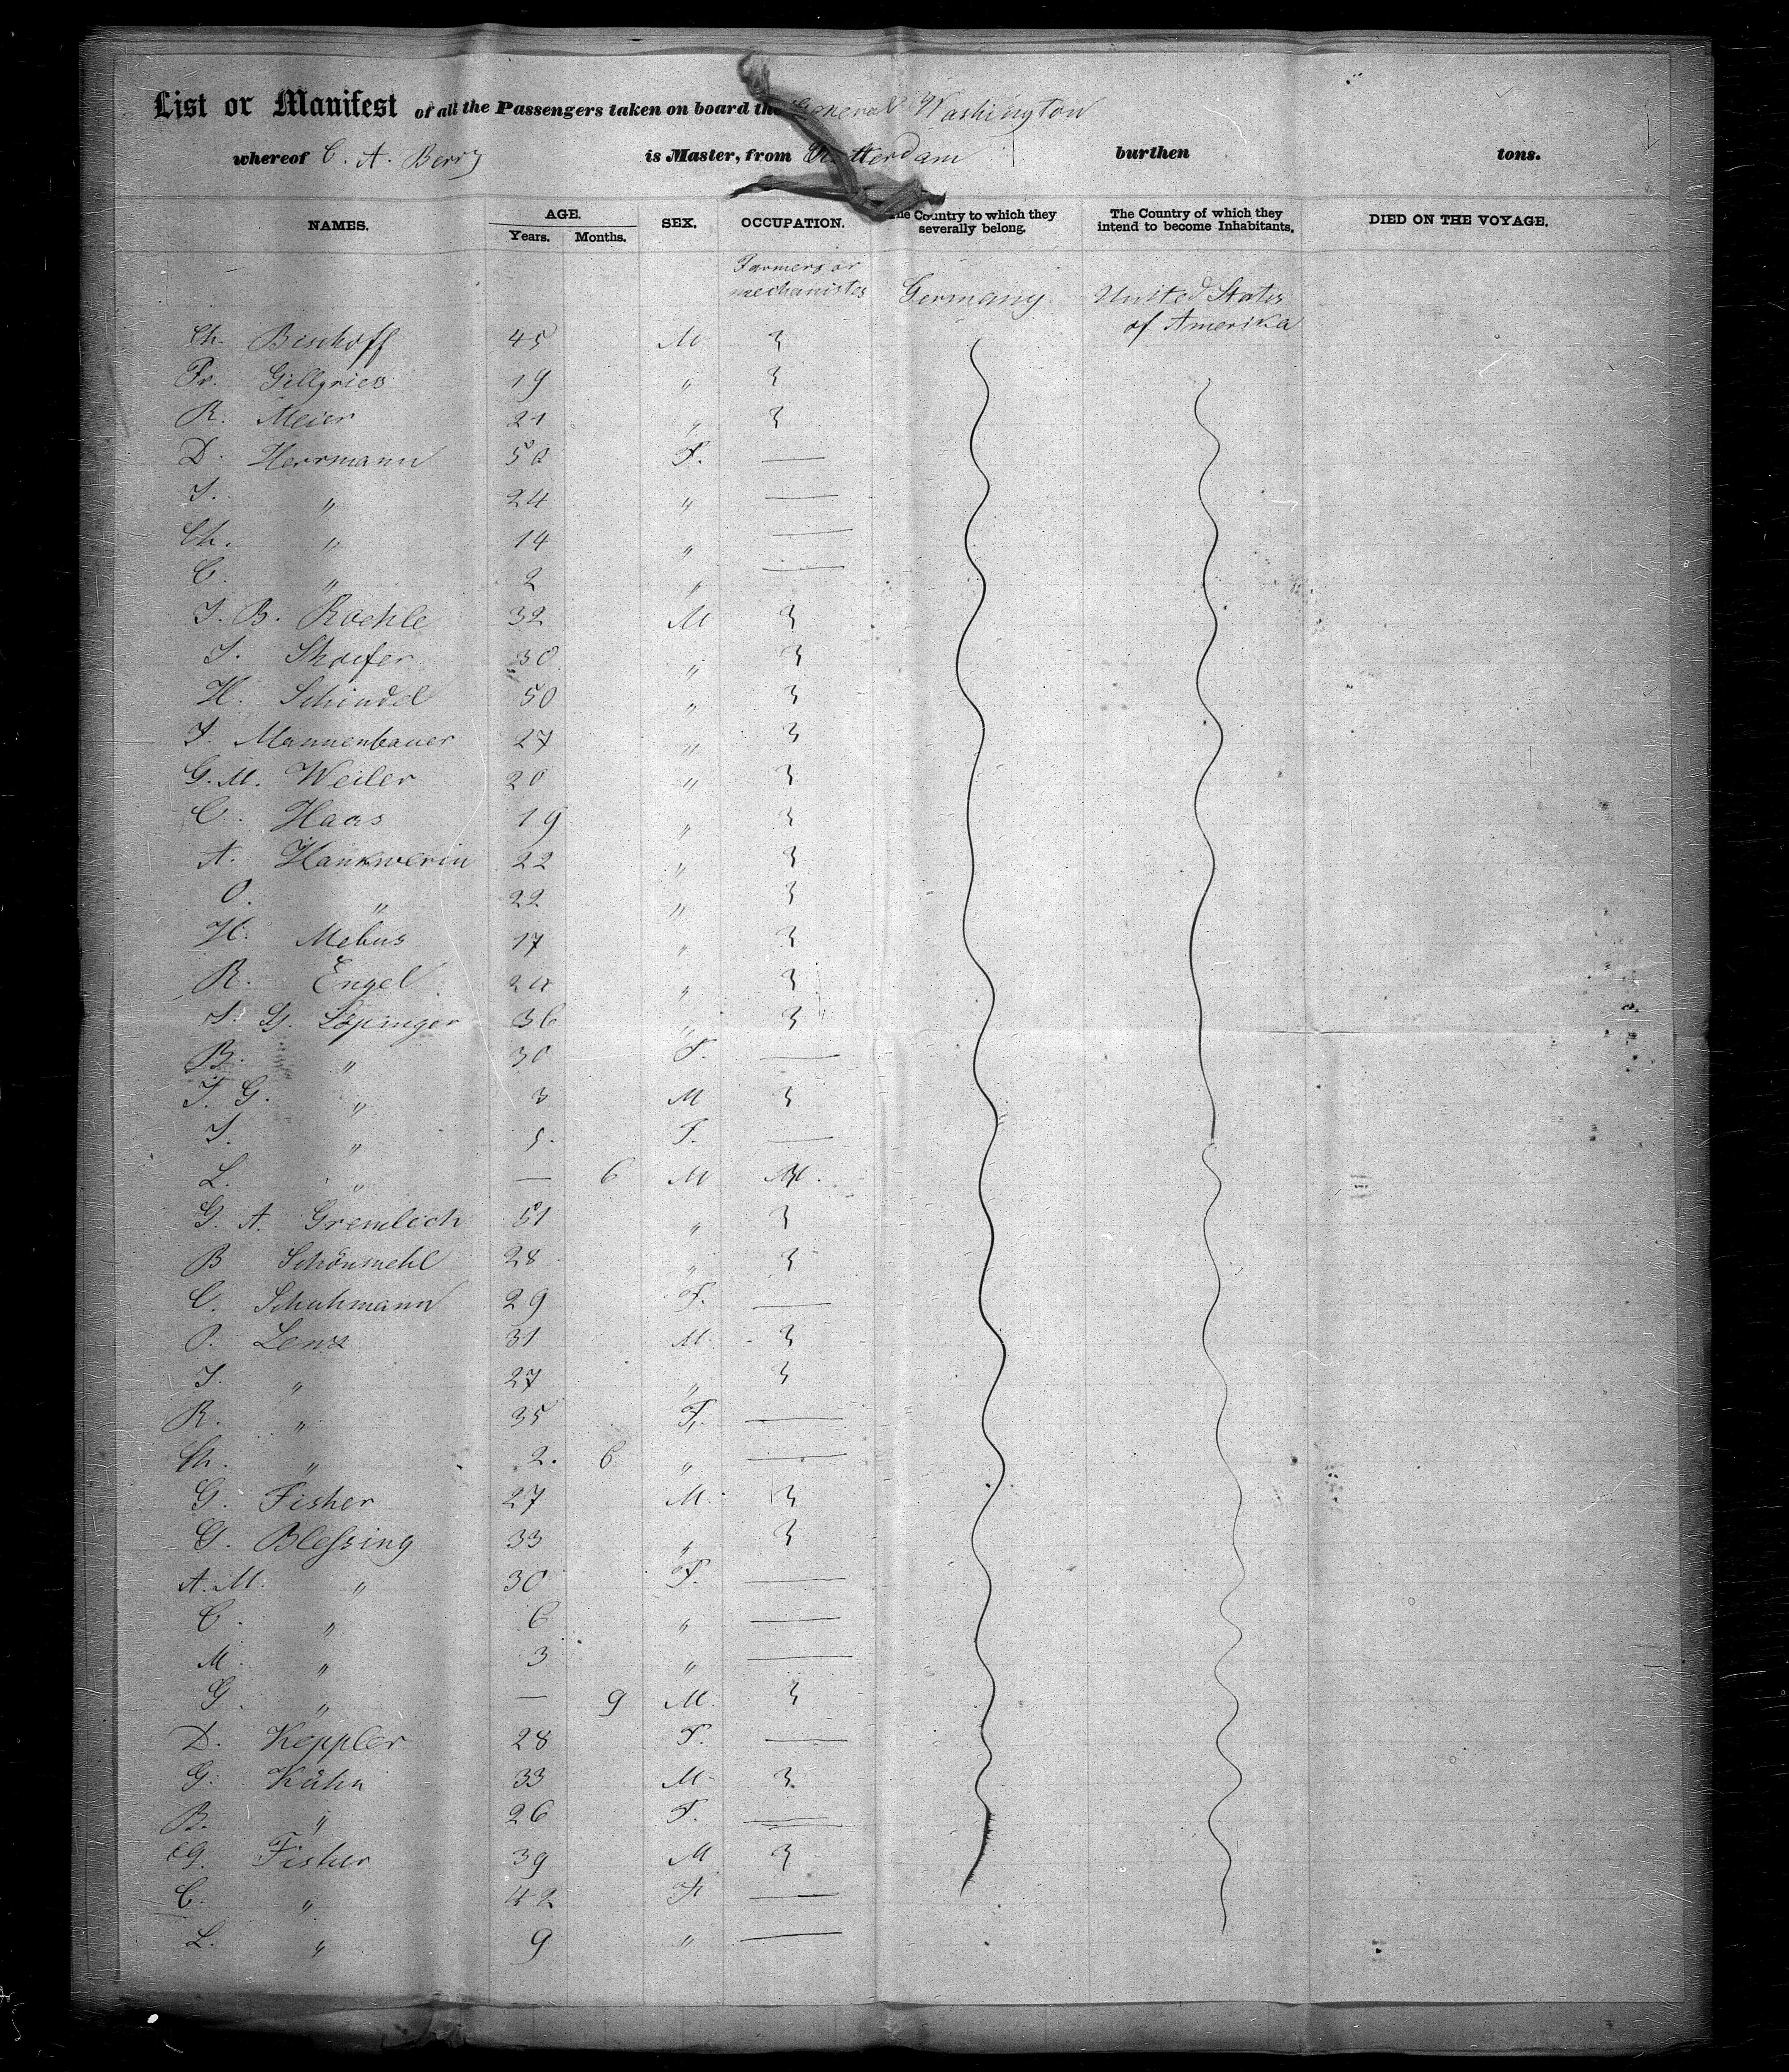 List or Manifest of all the Passengers taken on board the General Washington
whereof C. A. Berry is Master, from Rotterdam burthen tons.
NAMES. AGE. Years. Months. SEX. OCCUPATION. The Country to which they severally belong. The Country of which they intend to become Inhabitants. DIED ON THE VOYAGE.
Farmers or
mechanistes Germany United States
of Amerika
Ch. Bischoff 45 M 3
Fr. Gillgries 19 " 3
R. Meier 21 " 3
D. Herrmann 50 F. —
J. " 24 " —
Ch. " 14 " —
C. " 2 " —
J. B. Roehle 32 M 3
J. Shoefer 30 " 3
H. Schindel 50 " 3
J. Mannenbauer 27 " 3
G. M. Weiler 20 " 3
C. Haas 19 " 3
A. Hankwerin 22 " 3
O. " 22 " 3
H. Mebus 17 " 3
R. Engel 20 " 3
J. G. 36 " 3
B. " 30 F. —
J. G. " 3 M 3
J. " 5. F. —
L. " — 6 M
G. A. Gremlich 51 " 3
B Schönmehl 28 " 3
C. Schuhmann 29 F. —
P. Lenz 31 M. 3
J. " 27 " 3
R. " 35 F. —
Ch. " 2. 6 " —
G. Fisher 27 M. 3
G. Blessing 33 " 3
A. M. " 30 F. —
C. " 6 " —
M. " 3 " —
G. " — 9 M. 3
D. Keppler 28 F. —
G. Kühn 33 M. 3
B. " 26 F. —
G. Fisher 39 M 3
C. " 42 F. —
L. " 9 " —